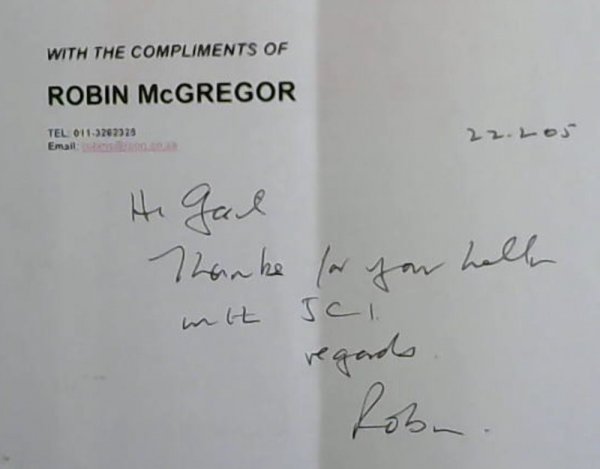 WITH THE COMPLIMENTS OF
ROBIN McGREGOR
TEL: 011-3262325
Email:
22.2.05
Hi Gail
Thanks for your help
with JCI.
regards.
Robin.